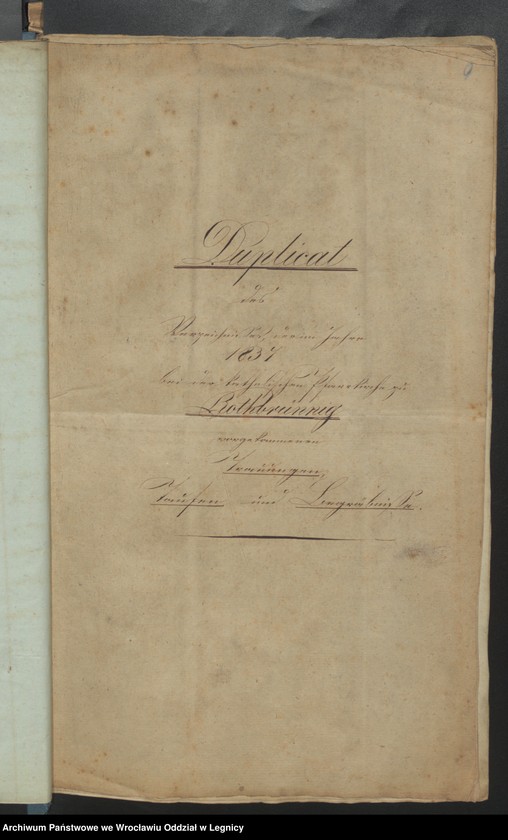 Duplicat
des
Verzeichnisses, der im Jahre
1837
bei der katholischen Pfarrkirche zu
vorgekommenen
Trauungen,
Taufen und Begräbnisse.
Archiwum Państwowe we Wrocławiu Oddział w Legnicy